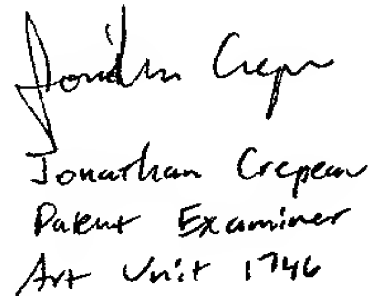 Jonathan Crepeau
Jonathan Crepeau
Patent Examiner
Art Unit 1746